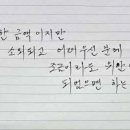 한 금액 이지만
소외되고 어려우신 분께
조금이라도 위안이
되었으면 하는